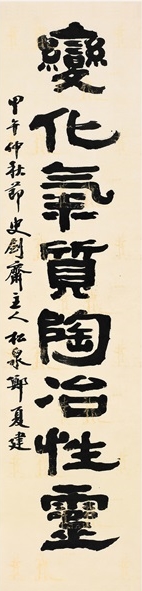 變化氣質陶冶性靈
甲午仲秋節史劍齋主人松泉鄭夏建